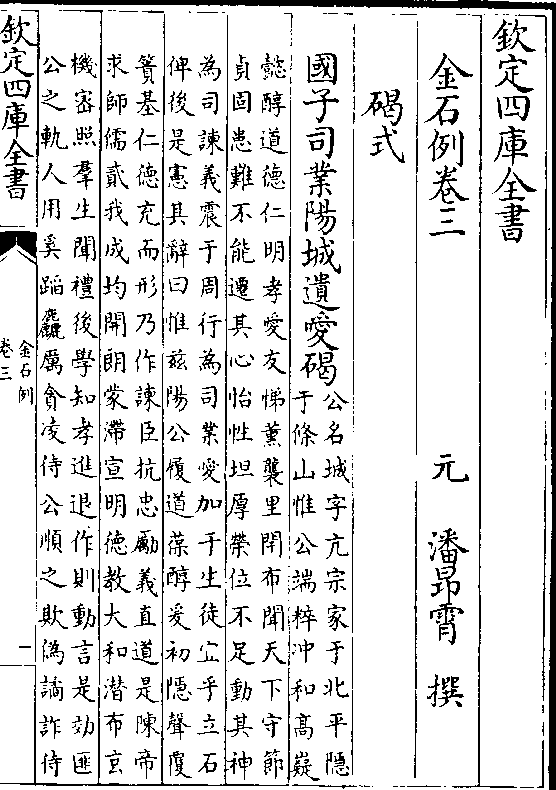 欽定四庫全書
金石例卷三　元　潘昂霄　撰
碣式
國子司業陽城遺愛碣
公名城字亢宗家于北平隱
于條山惟公端粹冲和髙嶷
懿醇道德仁明孝愛友悌薰襲里閈布聞天下守節
貞固患難不能遷其心怡性坦厚榮位不足動其神
為司諫義震于周行為司業愛加于生徒宜乎立石
俾後是憲其辭曰惟兹陽公履道葆醇爰初隱聲覆
簣基仁德充而形乃作諫臣抗忠勵義直道是陳帝
求師儒貳我成均開朗蒙滯宣明德教大和潜布玄
機宻照羣生聞禮後學知孝進退作則動言是効匪
公之軌人用奚蹈麤厲貪凌侍公順之欺偽譎詐侍
欽定四庫全書
金石例
卷三
一